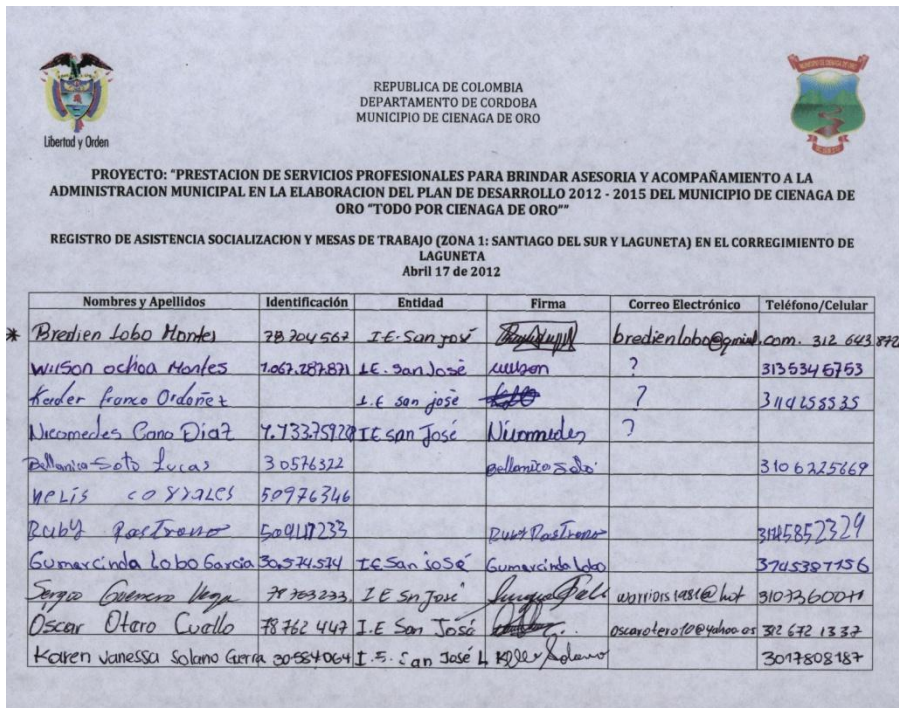 Libertad y Orden
REPUBLICA DE COLOMBIA
DEPARTAMENTO DE CORDOBA
MUNICIPIO DE CIENAGA DE ORO
PROYECTO: "PRESTACION DE SERVICIOS PROFESIONALES PARA BRINDAR ASESORIA Y ACOMPAÑAMIENTO A LA
ADMINISTRACION MUNICIPAL EN LA ELABORACION DEL PLAN DE DESARROLLO 2012 - 2015 DEL MUNICIPIO DE CIENAGA DE
ORO "TODO POR CIENAGA DE ORO""
REGISTRO DE ASISTENCIA SOCIALIZACION Y MESAS DE TRABAJO (ZONA 1: SANTIAGO DEL SUR Y LAGUNETA) EN EL CORREGIMIENTO DE
LAGUNETA
Abril 17 de 2012
Nombres y Apellidos Identificación Entidad Firma Correo Electrónico Teléfono/Celular
* Bredien Lobo Montes 78704567 I.E. San José bredienlobo@gmail.com. 312 643 872
Wilson ochoa Montes 1.067.287.871 I.E. San José wilson ? 3135345753
Keider franco Ordoñez I.E san josé ? 3114258535
Nicomedes Cano Diaz IE San José Nicomedes ?
Bellanira Soto Lucas 30576322 Bellanira Soto 3106225669
Nelis corrales 50976346
Ruby Pastrano Ruby Pastrano
Gumarcinda Lobo Garcia 30.574.574 IE San josé Gumarcinda lobo
Sergio Guerrero Vega 78763233. IE Sn José warriors1981@hot
Oscar Otero Cuello 78762447 I.E San José oscarotero10@yahoo.es 312 672 1337
Karen Vanessa Solano Guerra 30584064 I.E. San José L Solano 3017808187